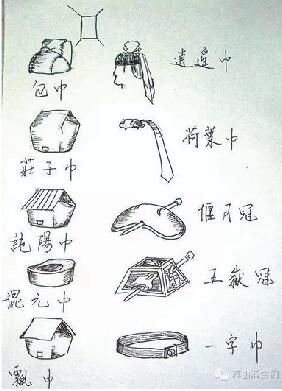 逍遥巾
包巾
荷葉巾
莊子巾
偃月冠
純陽巾
五嶽冠
混元巾
一字巾
飄巾